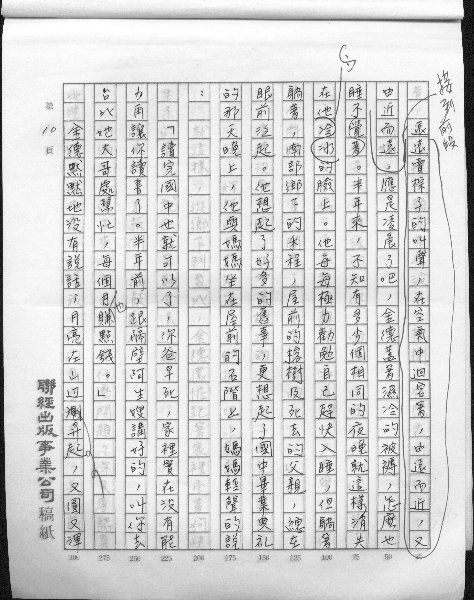 接到前段
遠遠賣粽子的叫聲，在空氣中迴容著，由遠而近，又
由近而遠，應是凌晨了吧，金德蓋著濕冷的被褥，怎麼也
睡不覺著。半年來，不知有多少個相同的夜晚就這樣消失
在他冷冰的臉上。他每每極力勸勉自己趕快入睡，但躺著
躺著，南部鄉下的米程，屋前的榕樹及死去的父親，總在
眼前浮起。他想起了好多的舊事，更想起了國中畢業典禮
的那天晚上，他與媽媽坐在屋前的石階上，媽媽輕聲的說
：
「讀完國中也就可以了，你爸早死，家裡實在沒有能
力再讓你讀書了。半年前，跟隔壁阿生嫂講好的，叫你去
台北她大哥處幫忙，每個月也賺點錢。」
金德默默地沒有說話，月亮在山邊漸昇起，又圓又渾
第10頁
聯經出版事業公司 稿紙
25
50
75
100
125
150
175
200
225
250
275
300